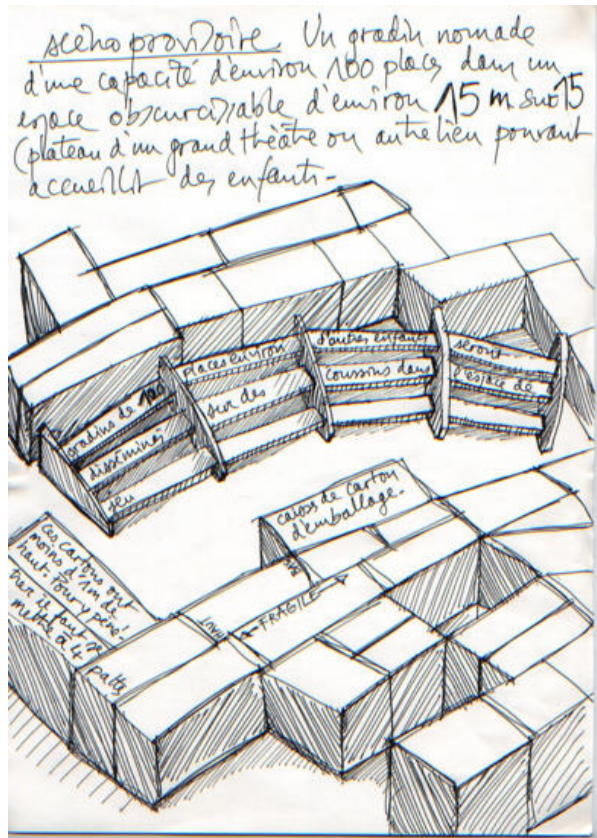 scéno provisoire Un gradin nomade
d'une capacité d'environ 100 places dans un
espace obscurcissable d'environ 15 m sur 15
(plateau d'un grand théâtre ou autre lieu pouvant
accueillir des enfants-
gradins de 100 places environ d'autres enfants seront
disséminés sur des coussins dans l'espace de
jeu
caisses de carton
d'emballage.
Ces cartons ont
moins d'1m de
haut. Pour y péné-
trer il faut se
mettre à 4
pattes
FRAGILE